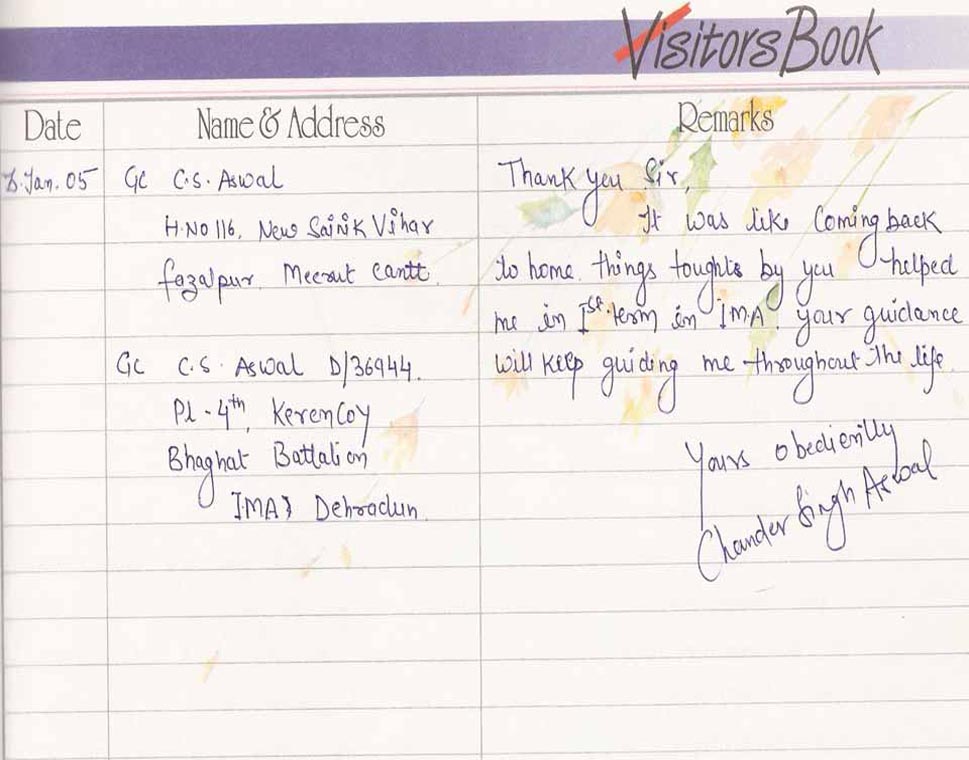 Visitors Book
Date Name & Address Remarks
Jan. 05 GC C.S. Aswal Thank you Sir,
H.No 116, New Sainik Vihar It was like Coming back
fazalpur. Meerut Cantt. to home. things toughts by you helped
me in Ist term in I.M.A. your guidance
GC C.S. Aswal D/36944. will keep guiding me throughout the life.
Pl - 4th, Keren Coy
Bhaghat Battalion Yours obediently
I.M.A Dehradun. Chander Singh Aswal